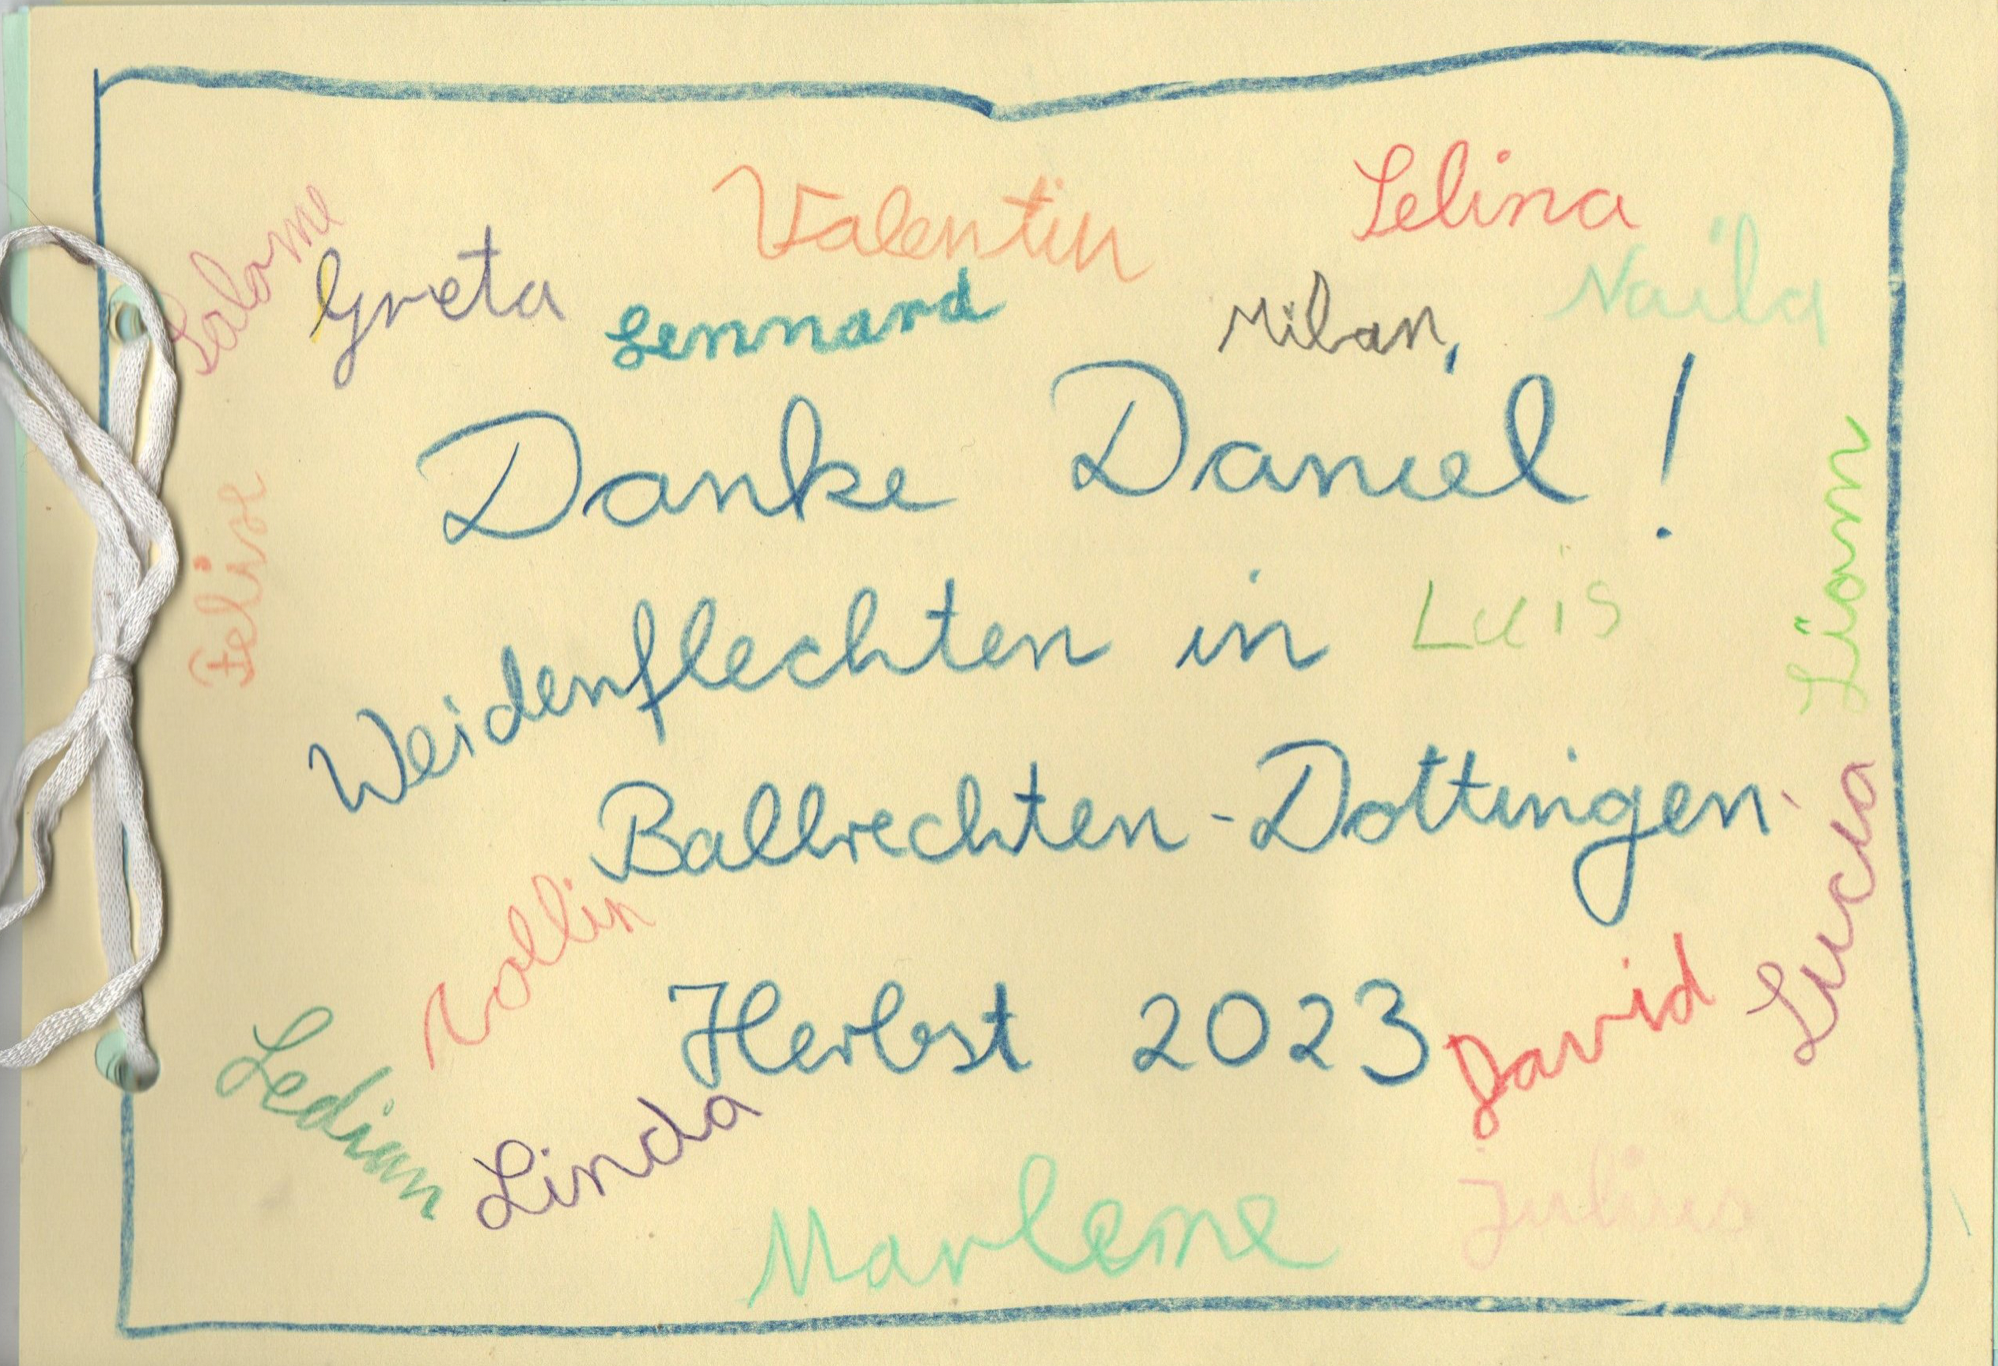 Salome
Greta
Valentin
Lennard
Selina
Milan
Naila
Danke Daniel!
Felise
Weidenflechten in
Luis
Lionn
Ballrechten-Dottingen.
Lucia
Herbst 2023
David
Linda
Marlene
Julius